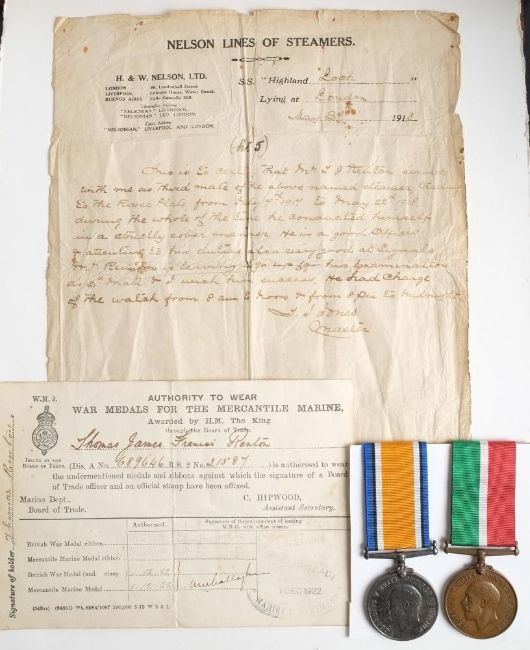 NELSON LINES OF STEAMERS.
H. & W. NELSON, LTD.
LONDON - 98, Leadenhall Street.
LIVERPOOL, Colonial House, Water Street.
BUENOS AIRES - Calle Cangallo
Telegraphic Address
"NELSONIAN," LIVERPOOL.
"NELSONIAN," LTD. LONDON.
Cable Address
"NELSONIAN," LIVERPOOL AND LONDON.
S.S. "Highland Loch"
Lying at London
May 1918
This is to certify that Mr T J F Henton served
with me as third mate of the above named steamer, trading
to the River Plate from July 7th 1917 to May 22nd 1918
during the whole of the time he conducted himself
in a strictly sober manner. He is a good Officer
& attentive to his duties also very good at Signals
Mr Henton is leaving to go up for his Examination
as 2nd Mate & I wish him success, He had Charge
of the watch from 8 am to Noon & from 8 Pm to Midnight
Jones
Master
W.M. 2.
AUTHORITY TO WEAR
WAR MEDALS FOR THE MERCANTILE MARINE,
Awarded by H.M. The King
through the Board of Trade.
ISSUED BY THE
BOARD OF TRADE.
Thomas James Francis Henton
(Dis. A No. 689646 R.S. 2 No. 21587) is authorised to wear
the undermentioned medals and ribbons against which the signature of a Board
of Trade officer and an official stamp have been affixed.
Marine Dept.,
Board of Trade.
C. HIPWOOD,
Assistant Secretary.
Signature of holder
Authorised.
Signature of Superintendent of issuing
M.M.O. with office stamp.
British War Medal ribbon
Mercantile Marine Medal ribbon
British War Medal (and clasp
Mercantile Marine Medal
1 DEC 1922